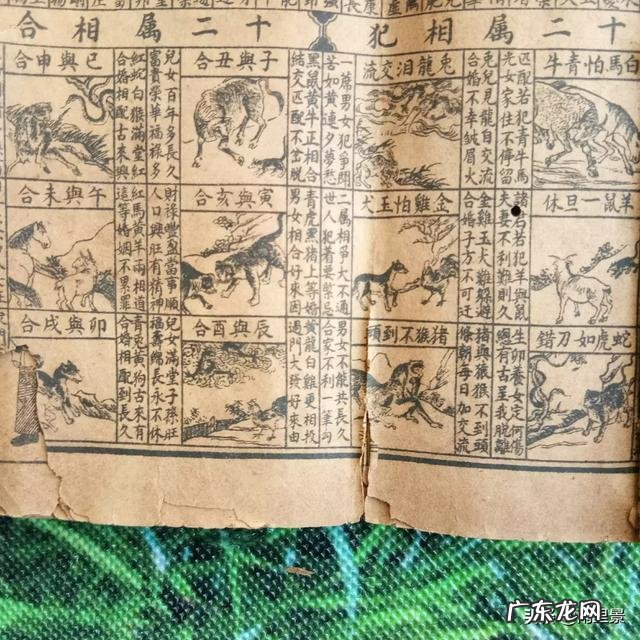 十二属相犯
白馬怕青牛
匹配若犯青牛馬
光女家住不停留
兔龍泪交流
兔兒見龍自交流
合婚不幸皺眉火
一蓆男女犯爭鬥
苦如黄連夕夢愁
羊鼠一旦休
諸君若犯羊與鼠
夫妻不利難則久
金雞怕玉犬
金雞玉犬難躲避
合婚子方不可迁
二属相爭大不通
世人犯着要禁忌
蛇虎如刀錯
生卯養女定何傷
總有古呈我脱離
猪猴不到頭
猪與猿猴不到頭
條朝每日加交流
男女不能共長久
合家不利一筆勾
十二属相合
子與丑合
黑鼠黄牛正相合
結交匹配不岔脱
兒女百年多長久
富貴榮華福禄多
巳與申合
紅蛇白猴滿堂紅
合婚相配古來興
寅與亥合
青虎黑猪上等婚
男女相合好來因
財禄豐盈當事順
人口興旺有精神
午與未合
紅馬黄羊兩相道
這等婚姻不男罪
辰與酉合
黄龍白雞更相投
過門大發好來由
兒女滿堂子孫旺
福壽綿長永不休
卯與戌合
青兔黄狗古來有
合婚相配到長久
广东龙网